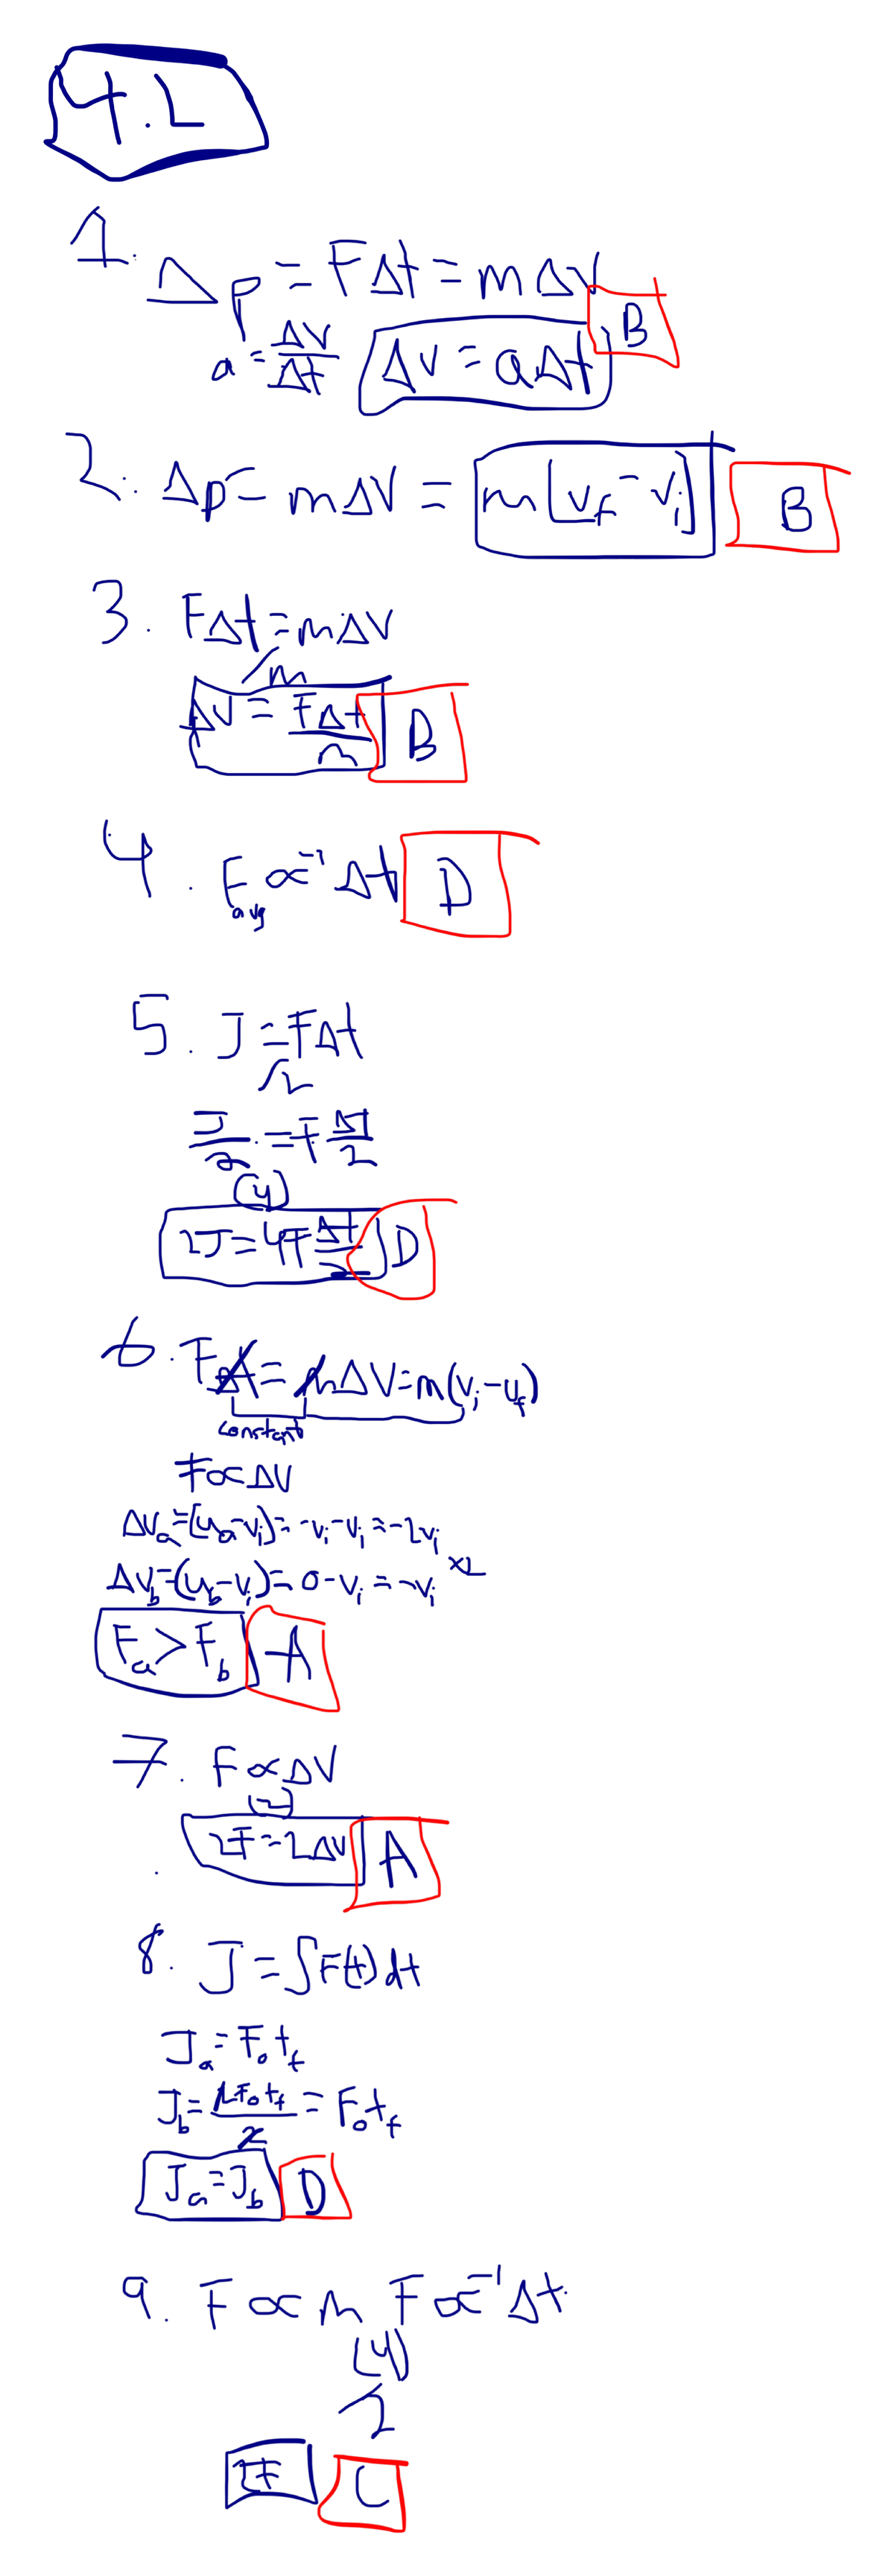 4.2
1. Δp = FΔt = mΔv
B
a = Δv/Δt Δv = aΔt
2. Δp = mΔv = m[v_f - v_i] B
3. FΔt = mΔv
/m
Δv = FΔt/m B
4. F_avg ∝⁻¹ Δt D
5. J = FΔt
/2
J/2 = F Δt/2
(4)
2J = 4F Δt/2 D
6. FΔt = mΔv = m(v_i - v_f)
constant
F ∝ Δv
Δv_a = (v_a - v_i) = -v_i - v_i = -2v_i
x2
Δv_b = (v_b - v_i) = 0 - v_i = -v_i
F_a > F_b A
7. F ∝ Δv
(2)
2F = 2Δv A
8. J = ∫F(t)dt
J_a = F_0 t_f
J_b = 2F_0 t_f/2 = F_0 t_f
J_a = J_b D
9. F ∝ m F ∝⁻¹ Δt
(4)
/2
2F C